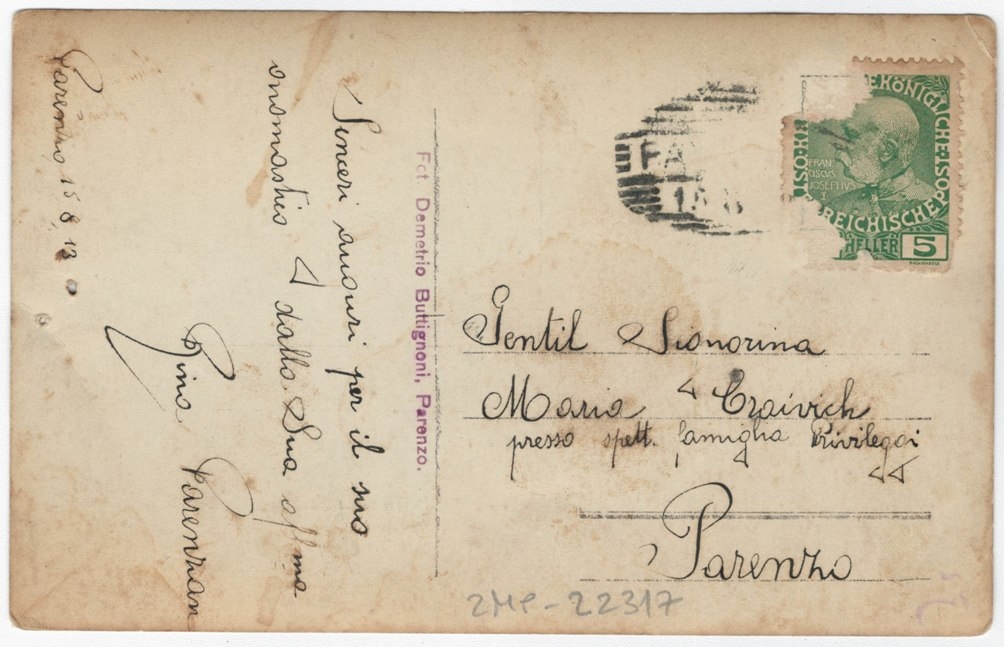 Parenzo 15 8 13
Sinceri auguri per il suo
onomastico dalla Sua affma
Gina Parenzan
Fot. Demetrio Buttignoni, Parenzo.
PA
15.8
KÖNIGLICHE POS
FRAN
CISCVS
IOSEPHVS
I
REICHISCHE
HELLER 5
Gentil Signorina
Maria Craivich
presso spett. famiglia Privileggi
Parenzo
ZMP-22317